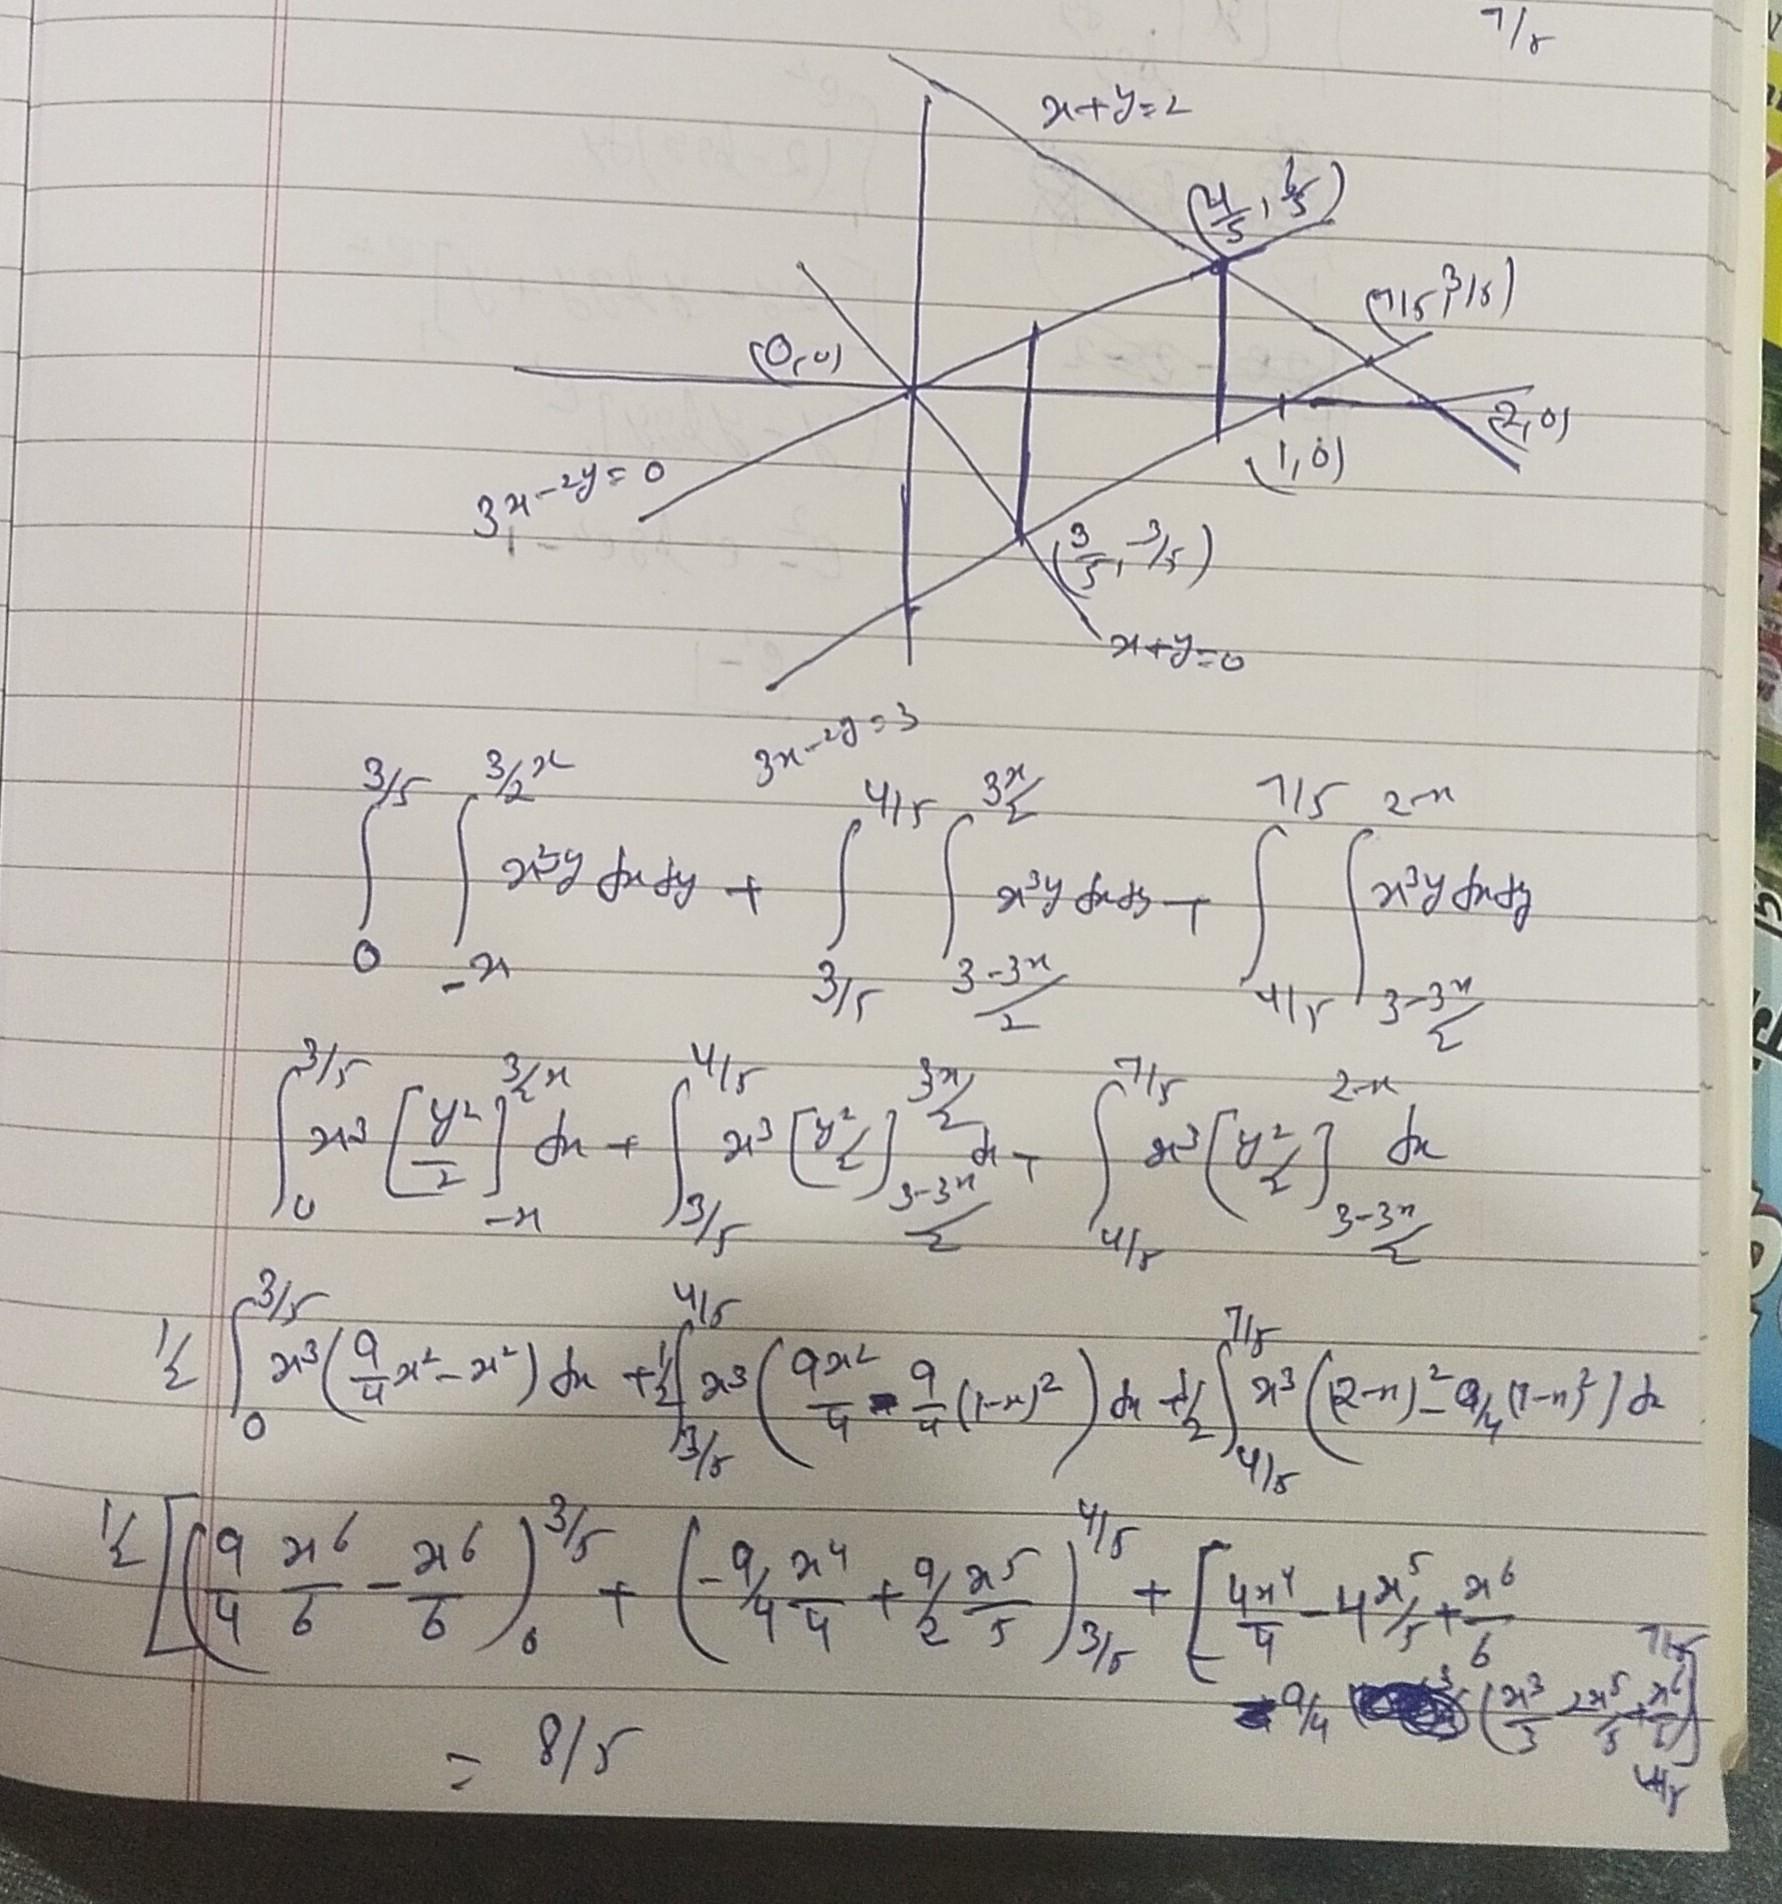 7/5
x+y=2
(4/5, 6/5)
(7/5, 3/5)
(0,0)
(2,0)
(1,0)
3x-2y=0
(3/5, -3/5)
x+y=0
3x-2y=3
∫_0^{3/5} ∫_{-x}^{3/2 x} x³y dx dy + ∫_{3/5}^{4/5} ∫_{3-3x/2}^{3x/2} x³y dx dy + ∫_{4/5}^{7/5} ∫_{3-3x/2}^{2-x} x³y dx dy
∫_0^{3/5} x³ [y²/2]_{-x}^{3/2 x} dx + ∫_{3/5}^{4/5} x³ [y²/2]_{3-3x/2}^{3x/2} dx + ∫_{4/5}^{7/5} x³ [y²/2]_{3-3x/2}^{2-x} dx
1/2 ∫_0^{3/5} x³ (9/4 x² - x²) dx + 1/2 ∫_{3/5}^{4/5} x³ (9x²/4 - 9/4 (1-x)²) dx + 1/2 ∫_{4/5}^{7/5} x³ ((2-x)² - 9/4 (1-x)²) dx
1/2 [(9/4 x⁶/6 - x⁶/6)_0^{3/5} + (-9/4 x⁴/4 + 9/2 x⁵/5)_{3/5}^{4/5} + [4x⁴/4 - 4x⁵/5 + x⁶/6
- 9/4 (x³/3 - 2x⁵/5 + x⁶/6)]_{4/5}^{7/5}
= 8/5